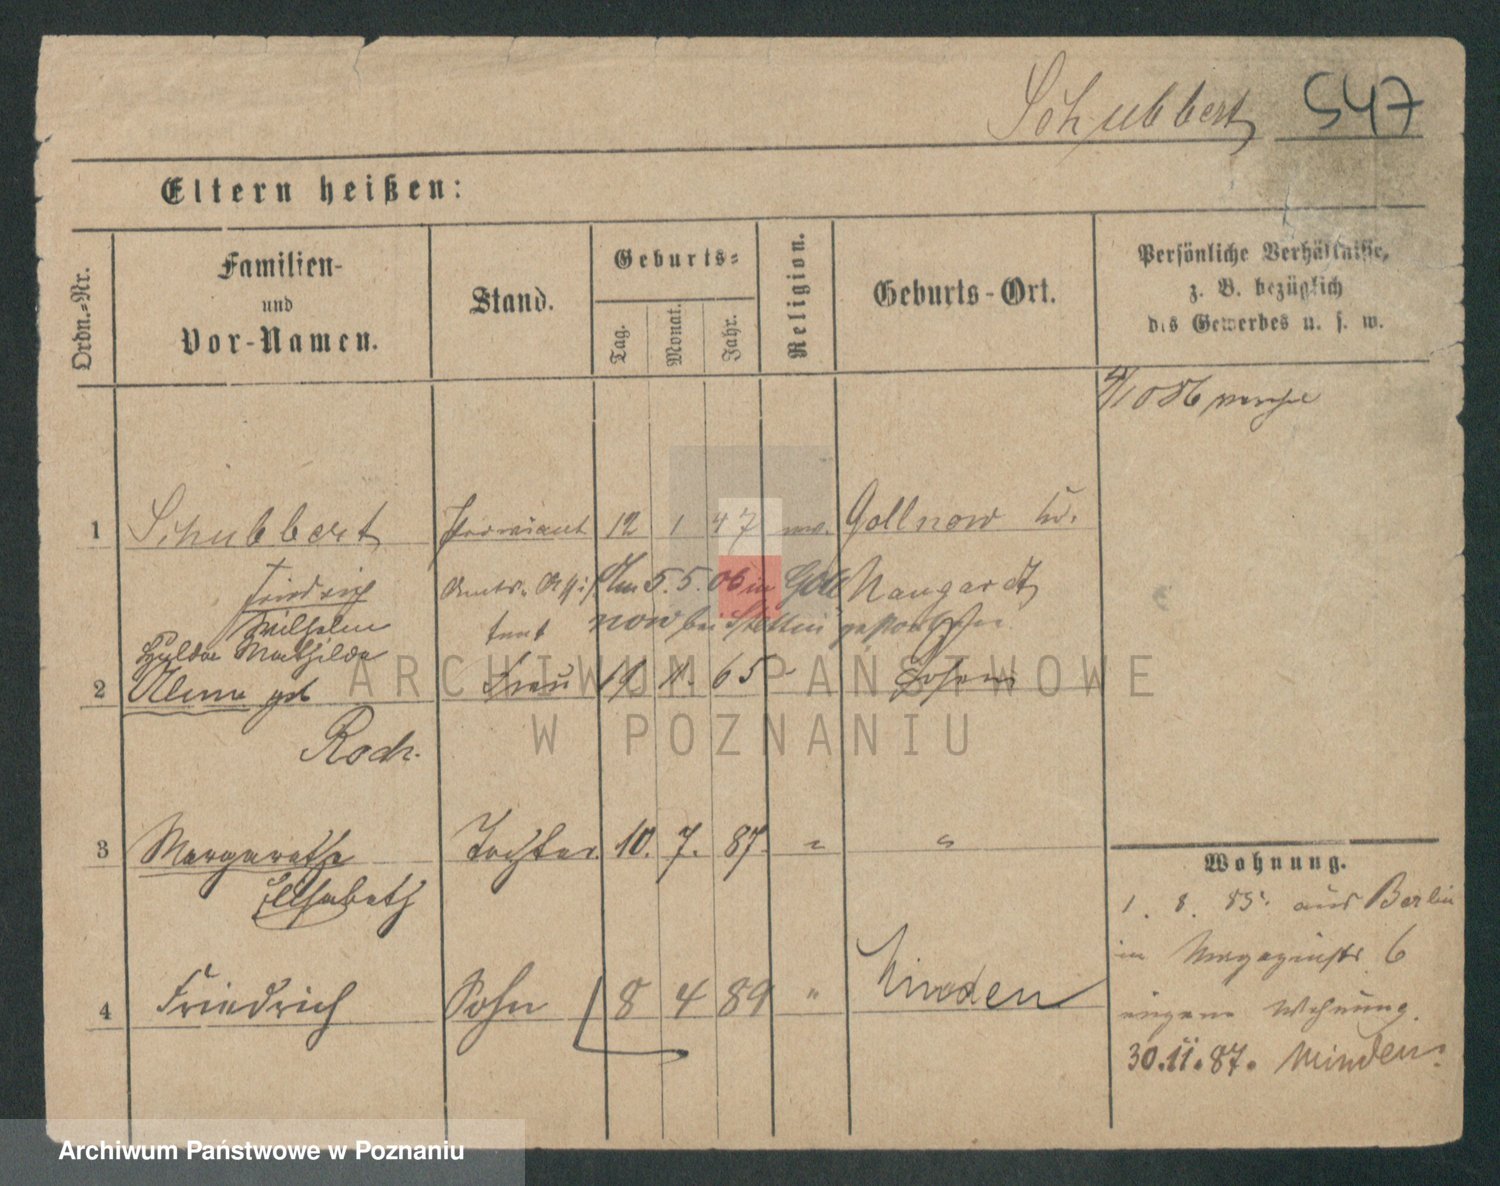 Schubbert 547
Eltern heißen:
Ordn.-Nr.
Familien-
und
Vor-Namen.
Stand.
Geburts-
Tag.
Monat.
Jahr.
Religion.
Geburts-Ort.
Persönliche Verhältnisse,
z. B. bezüglich
des Gewerbes u. s. w.
4/10 86
1 Schubbert Proviant 12 1 47 Gollnow Kr.
Friedrich Amts-Assi- Am 5.5.06 in Goll Naugardt
Wilhelm tent now bei Stettin gestorben.
Hulda Mathilde
2 geb Frau 19 65 Posen
Roch.
3 Margarethe Tochter. 10. 7. 87. " "
Elisabeth
4 Friedrich Sohn 8 4 89 " Minden
Wohnung.
1. 8. 85. aus Berlin
in Magazinstr 6
eigene Wohnung.
30.11.87. Minden.
ARCHIWUM PAŃSTWOWE
W POZNANIU
Archiwum Państwowe w Poznaniu